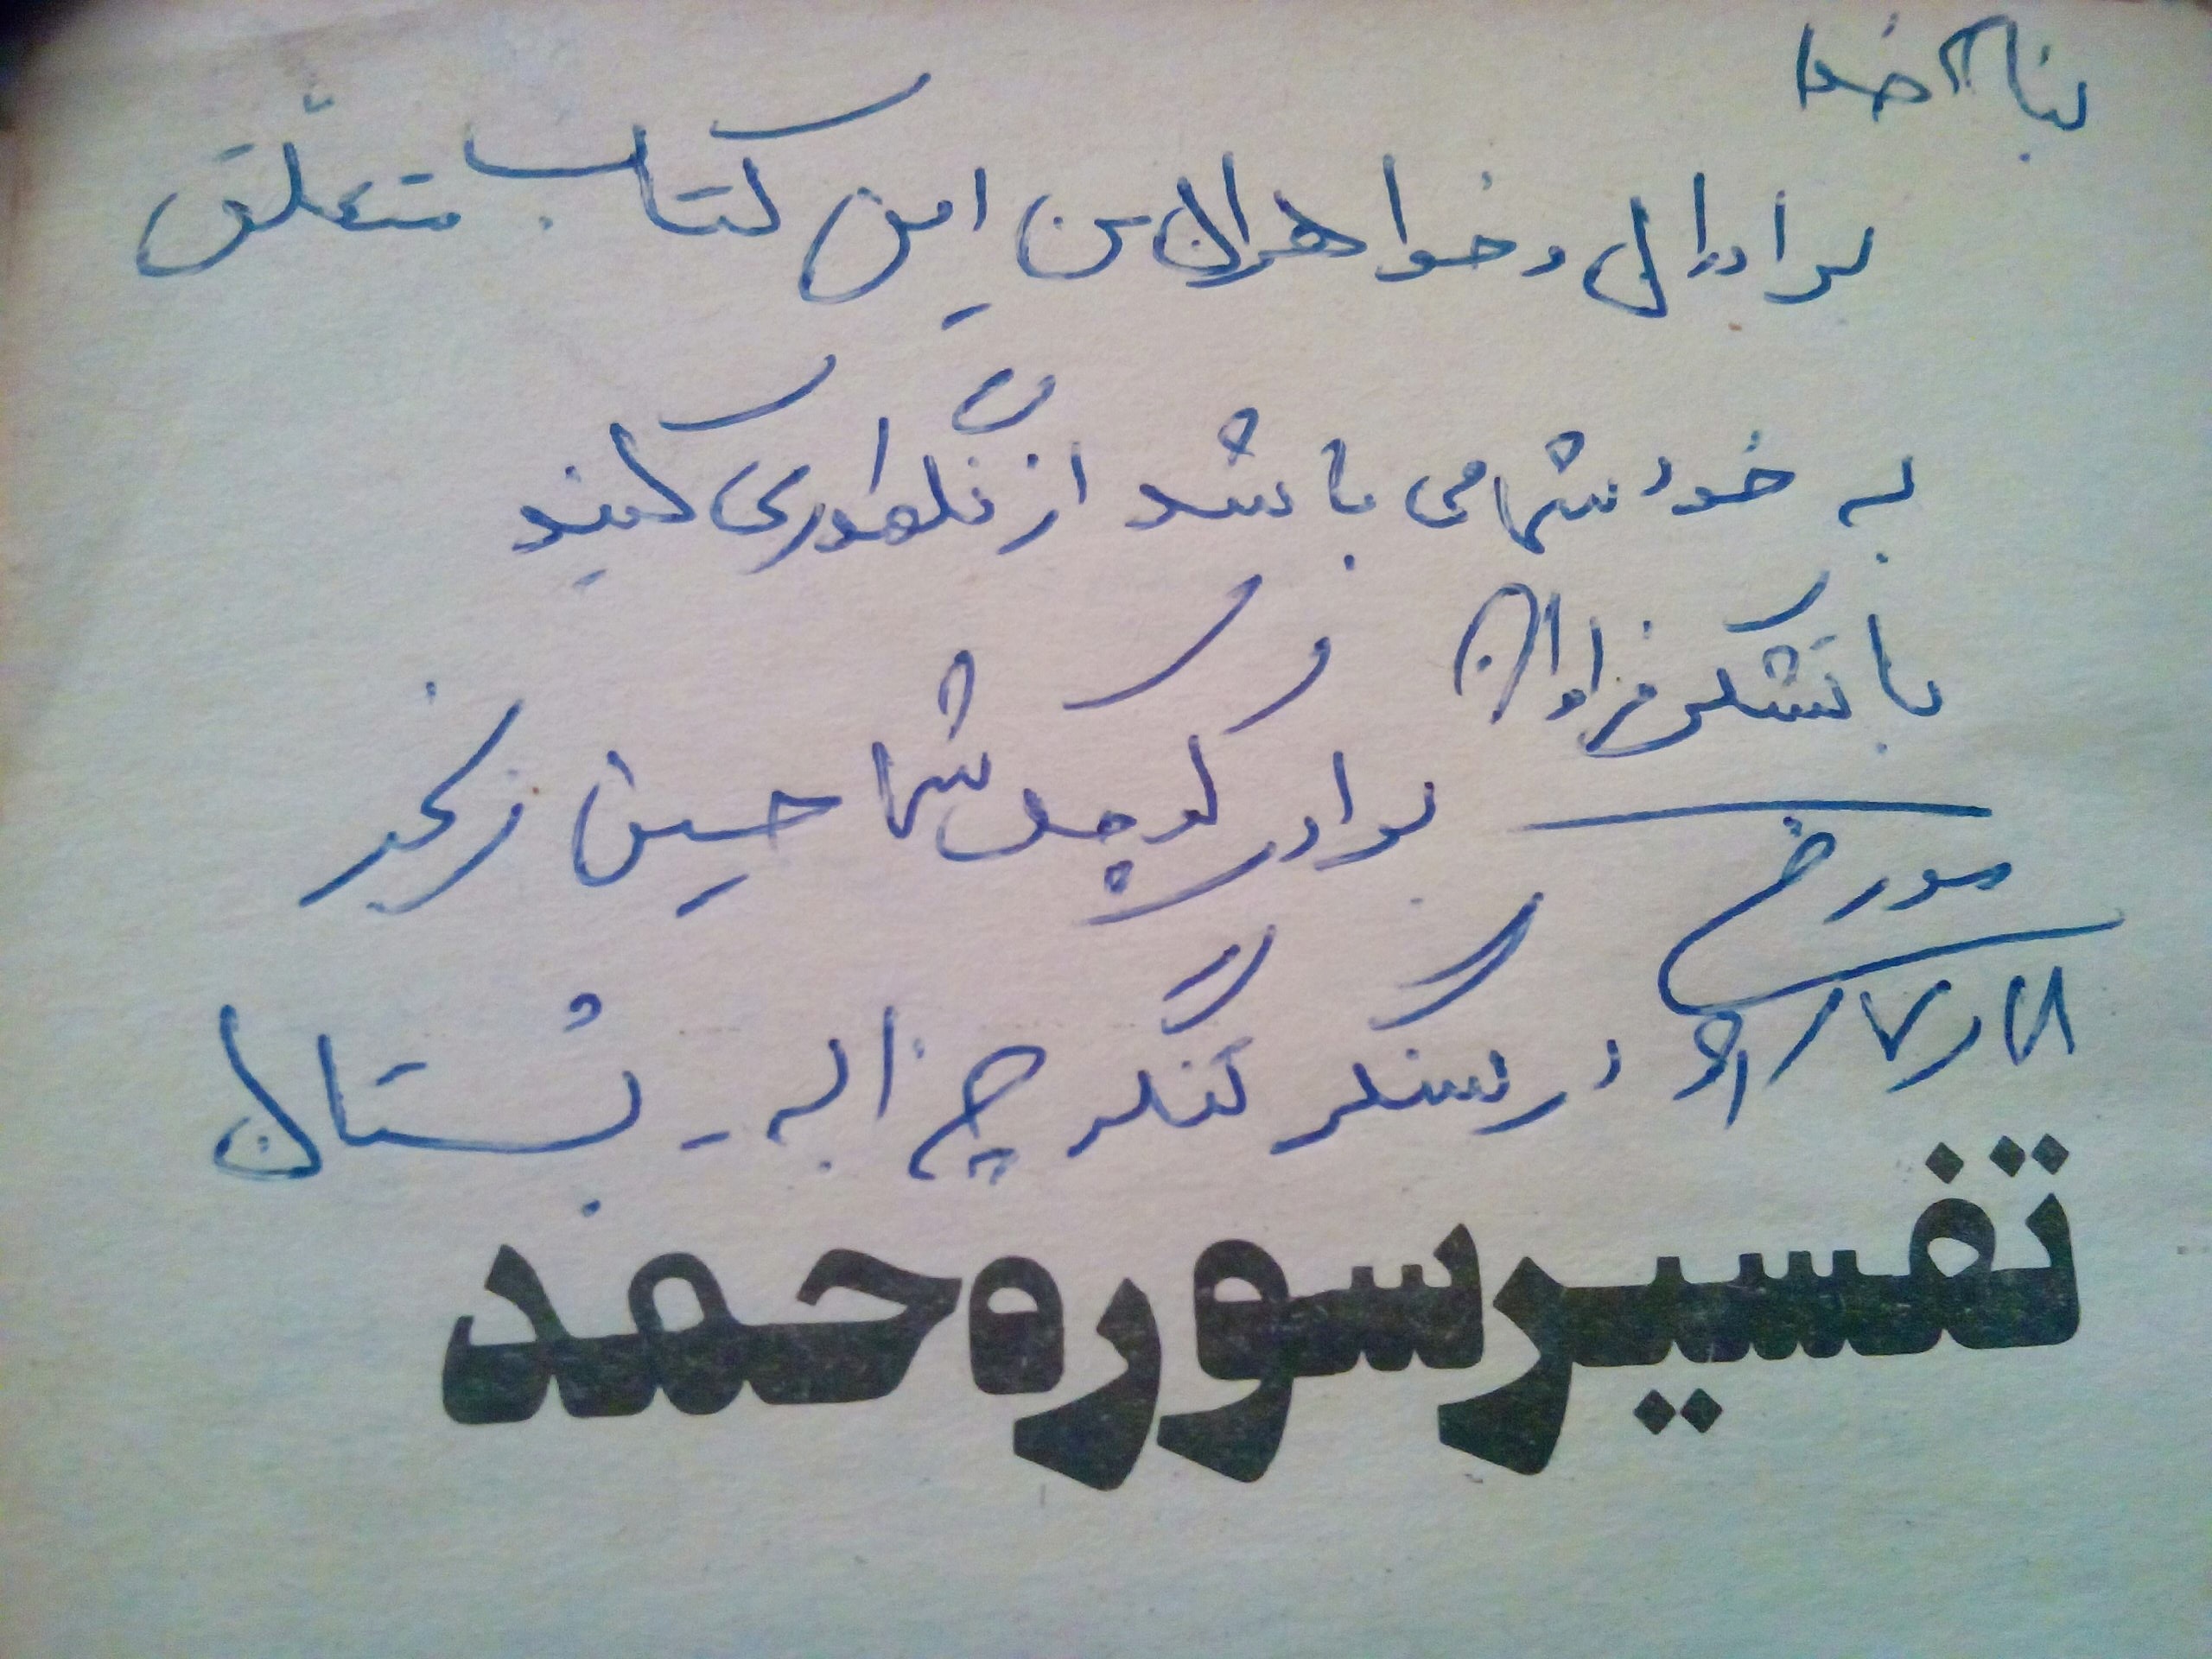 بنام خدا
برادران و خواهران من این کتاب متعلّق
به خود شما می باشد از آن نگهداری کنید
با تشکر فراوان
برادر کوچک شما حسین
مورخ
در سنگر تنگ چزابه - بستان
تفسیر سوره حمد